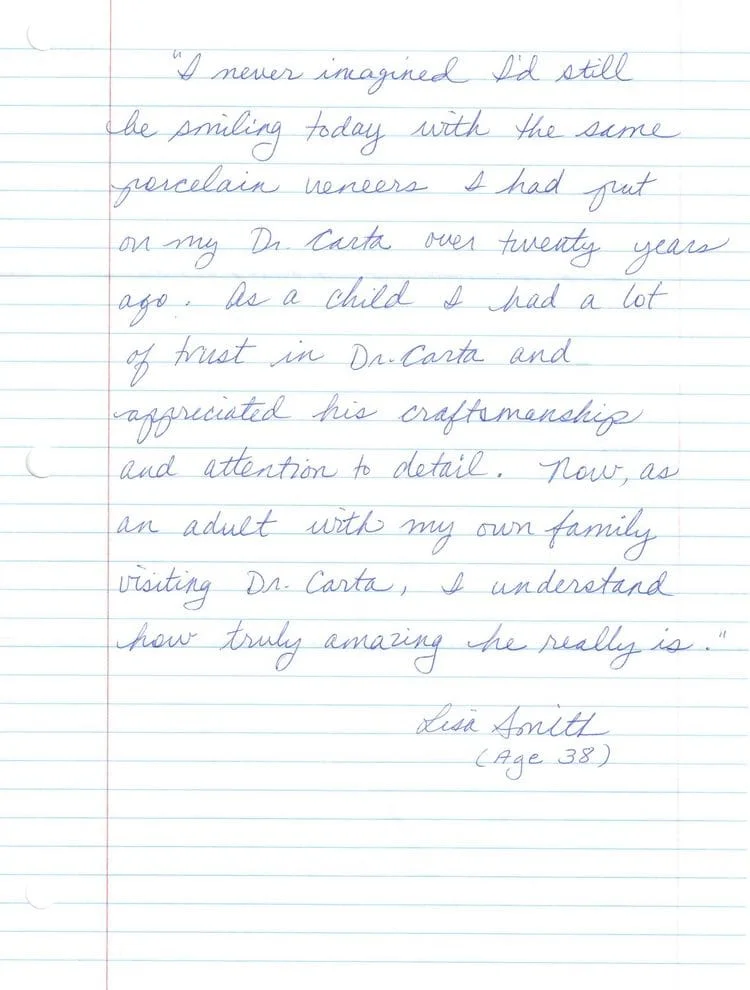 "I never imagined I'd still
be smiling today with the same
porcelain veneers I had put
on my Dr. Carta over twenty years
ago. As a child I had a lot
of trust in Dr. Carta and
appreciated his craftsmanship
and attention to detail. Now, as
an adult with my own family
visiting Dr. Carta, I understand
how truly amazing he really is."
Lisa Smith
(Age 38)